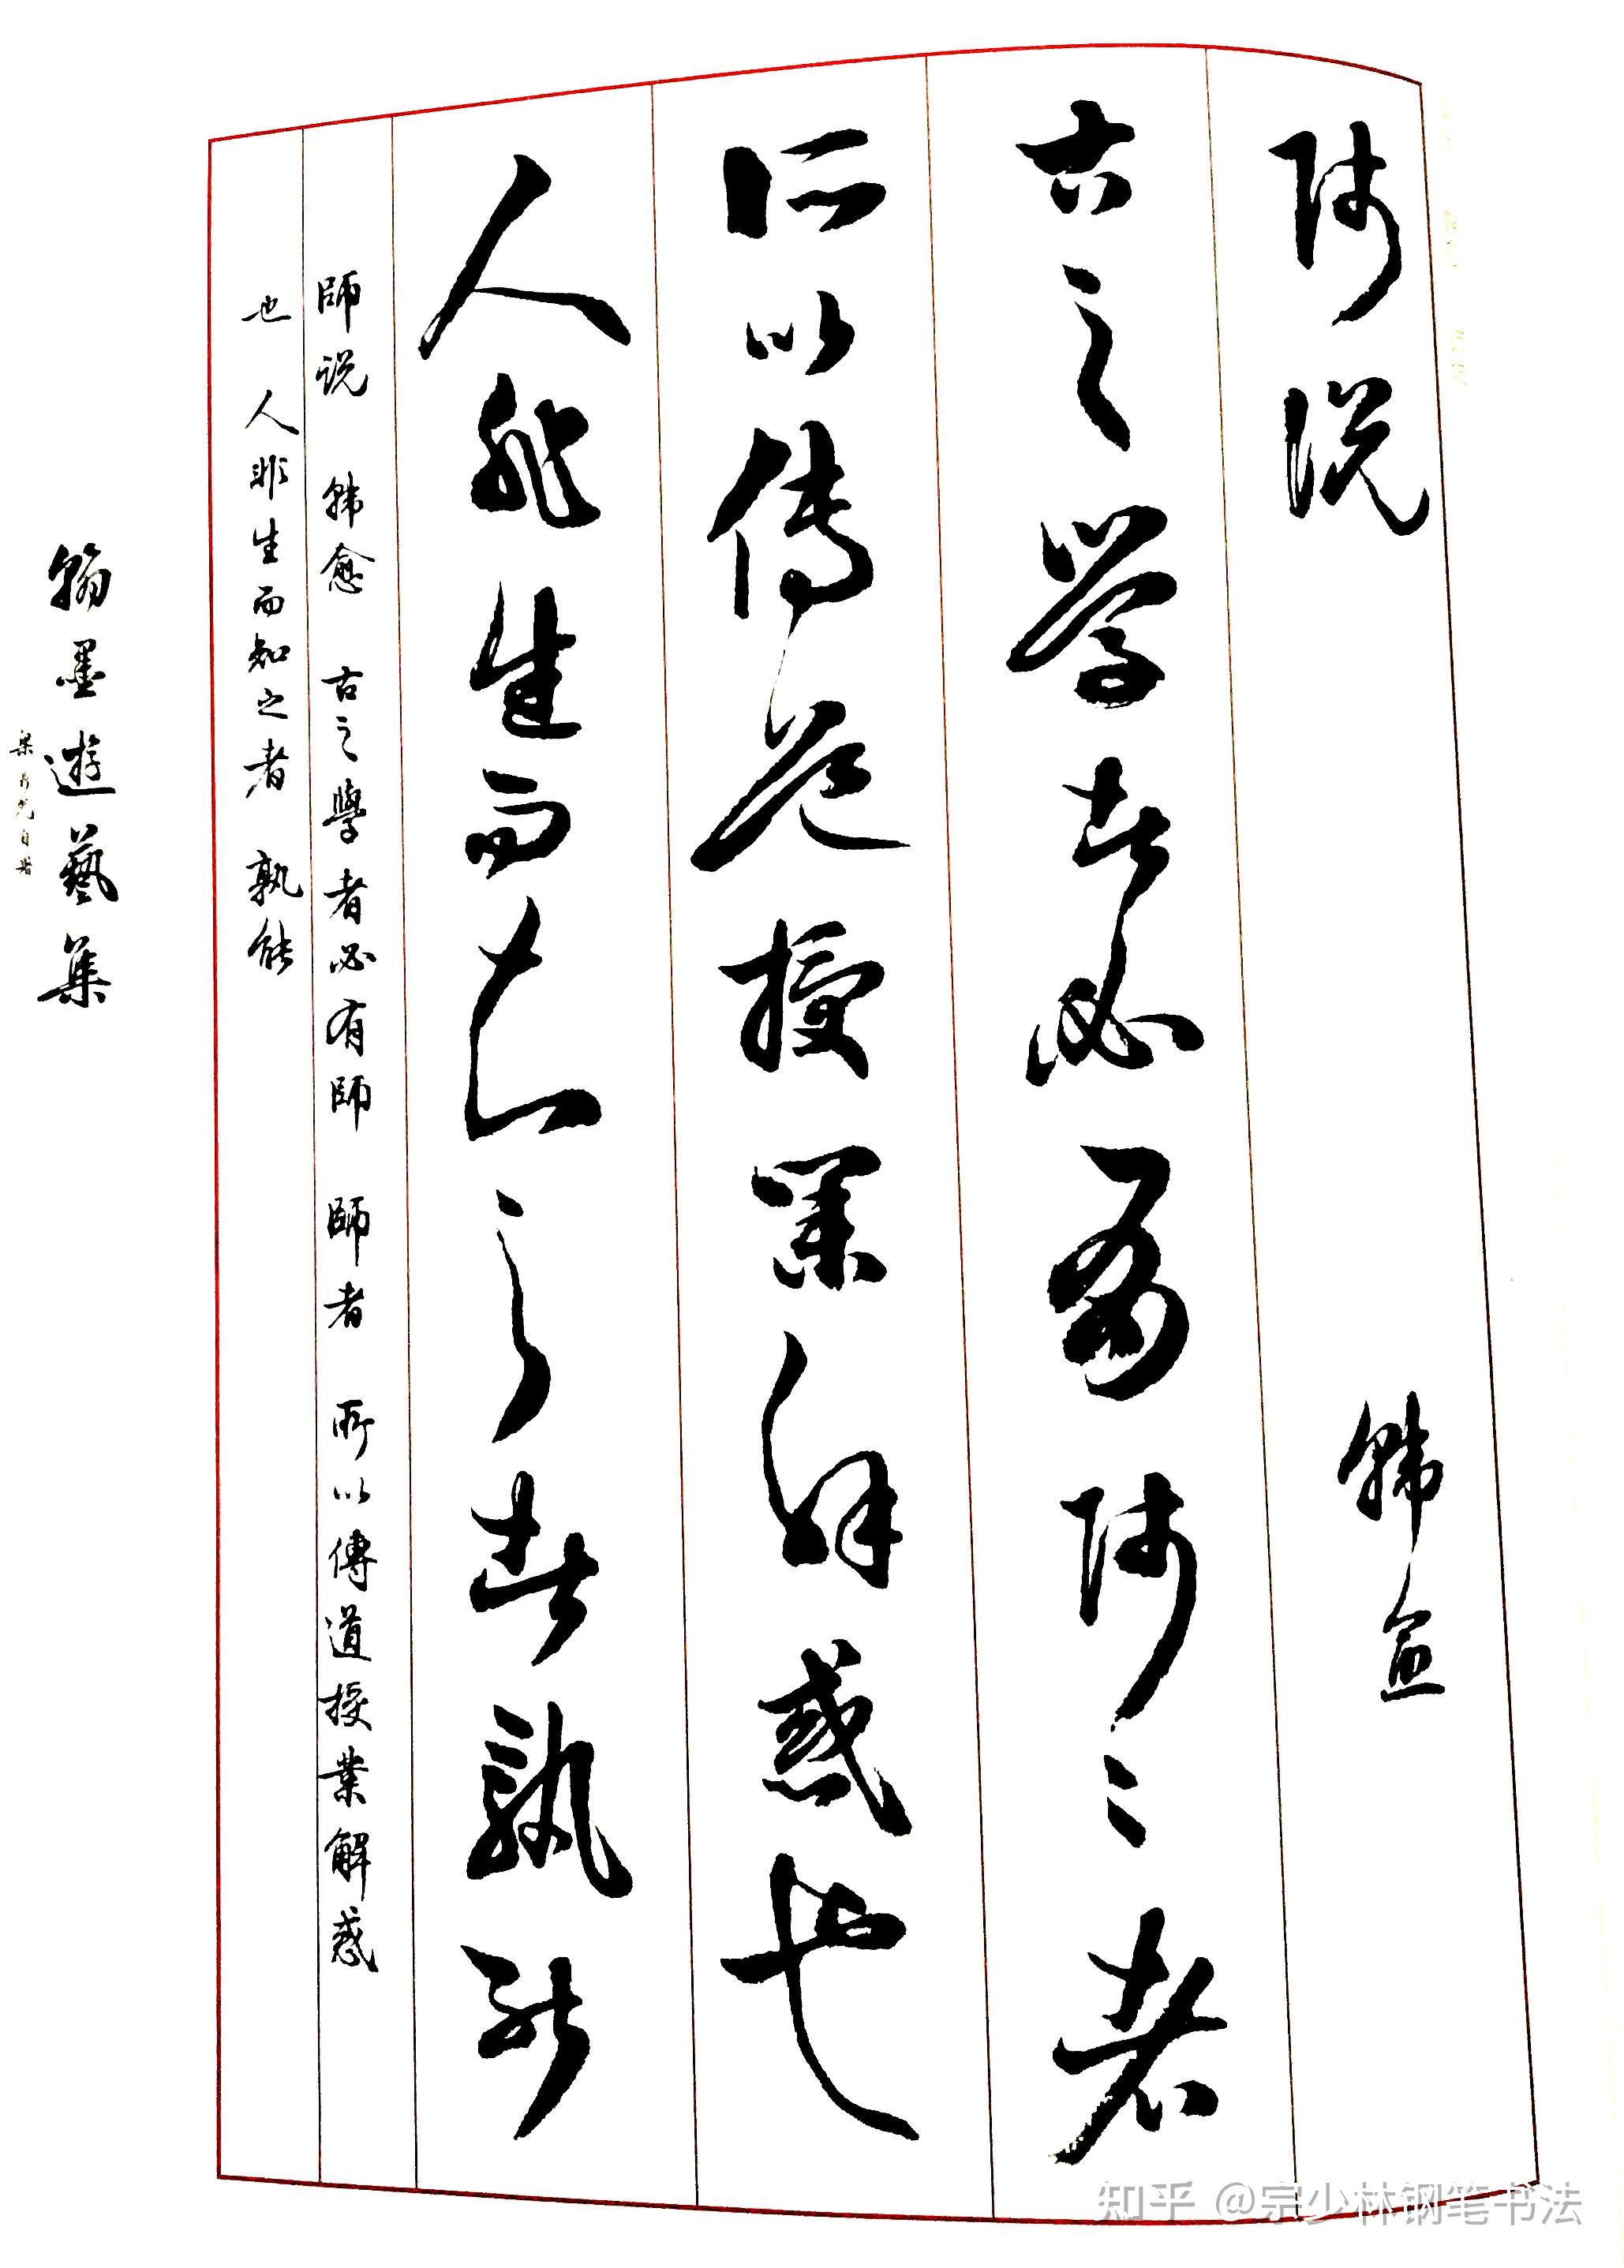 师说 韩愈
古之学者必有师师者
所以传道授业解惑也
人非生而知之者孰能
師说 韩愈 古之學者必有師 師者 所以傳道授業解惑
也 人非生而知之者 孰能
翰墨遊藝集
知乎 @宗少林钢笔书法